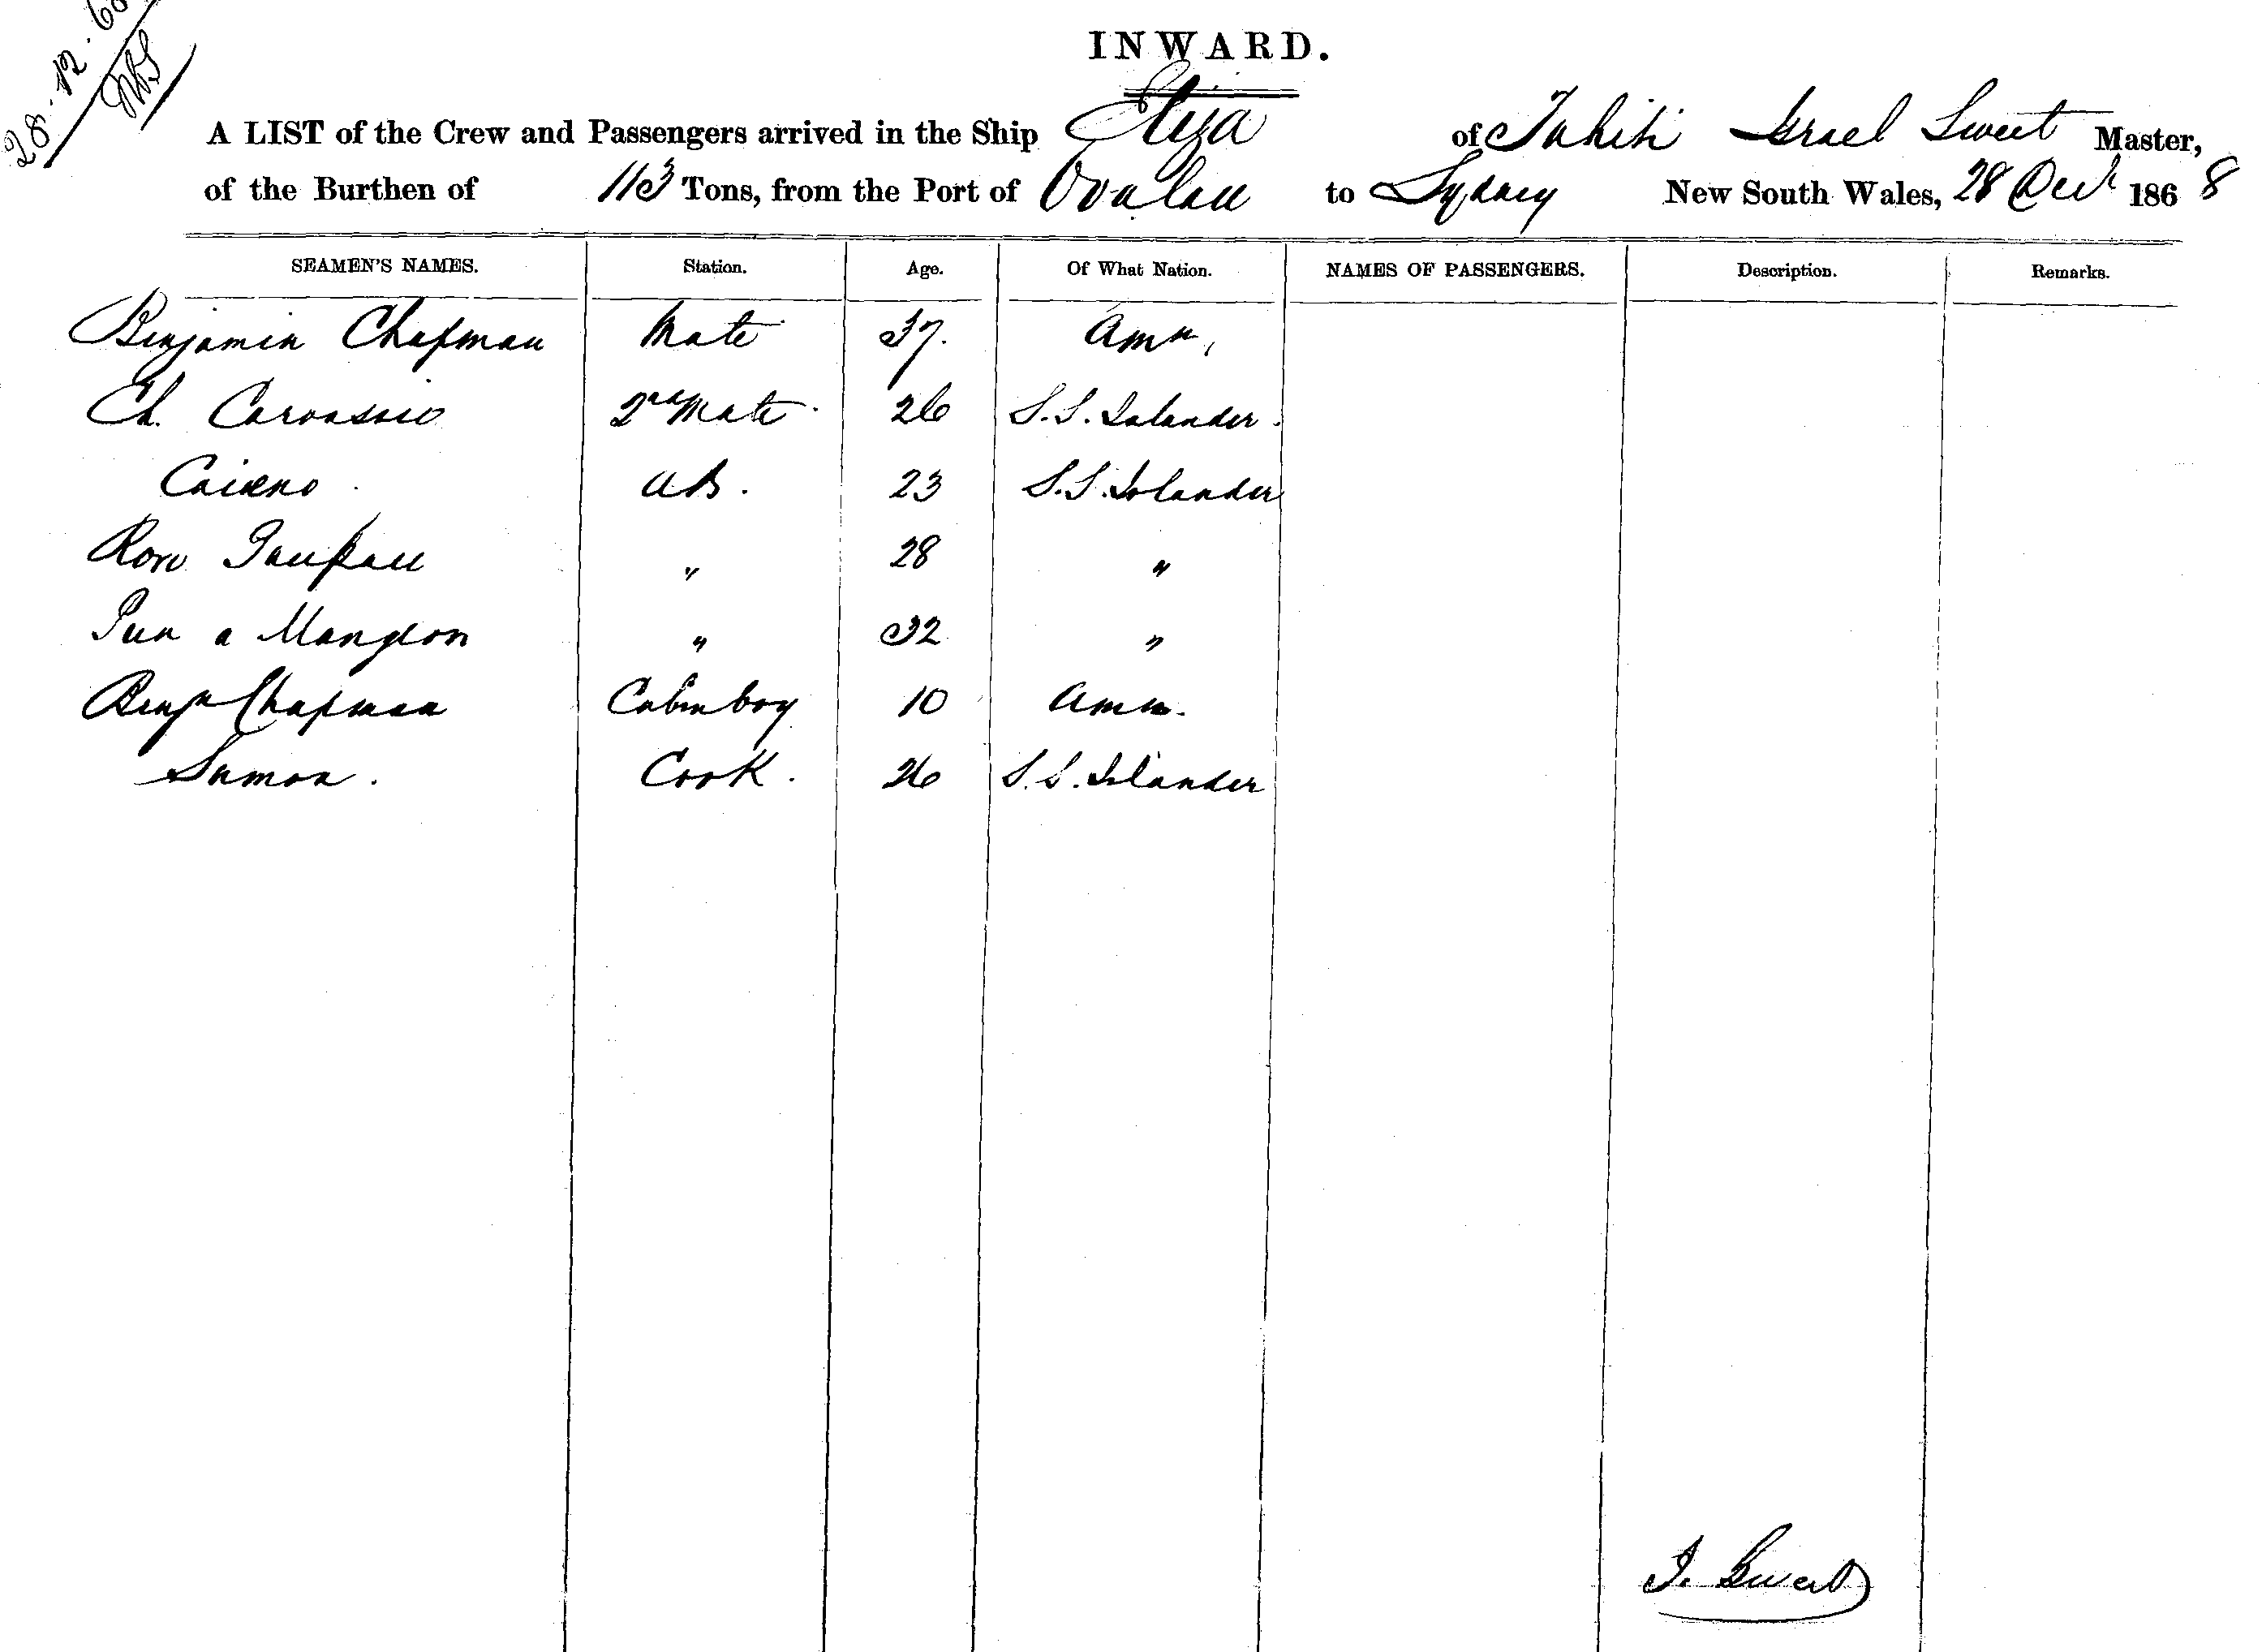 28.12.68
INWARD.
A LIST of the Crew and Passengers arrived in the Ship Eliza of Tahiti Israel Sweet Master,
of the Burthen of 113 Tons, from the Port of Ovalau to Sydney New South Wales, 28 Decr 1868
SEAMEN'S NAMES. Station. Age. Of What Nation. NAMES OF PASSENGERS. Description. Remarks.
Benjamin Chapman Mate 37. Amn.
Ch. 2nd Mate 26 S.S. Islander.
AB. 23 S.S. Islander
28 "
a " 32 "
Benjn Chapman Cabin boy 10 Amn.
Cook. 26 S.S. Islander
I. Sweet